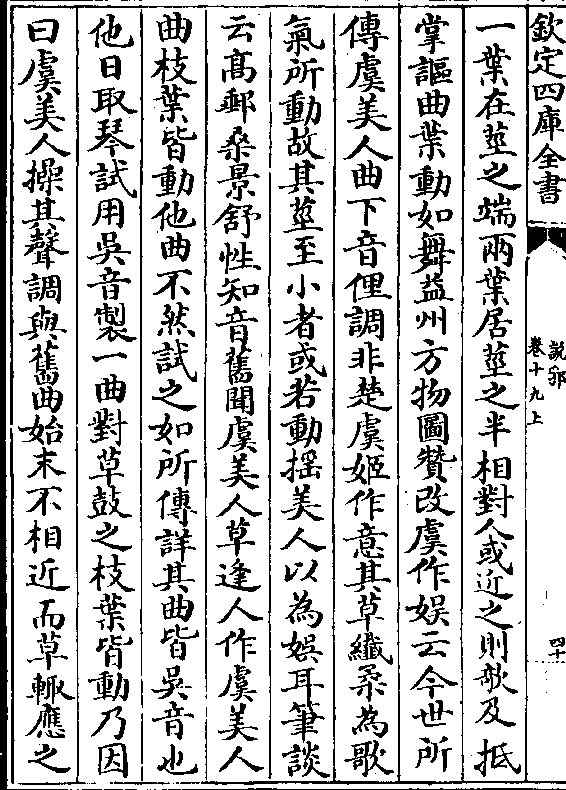 欽定四庫全書
說郛
卷十九上
四十
一葉在莖之端兩葉居莖之半相對人或近之則欹及抵
掌謳曲葉動如舞益州方物圖贊改虞作娱云今世所
傳虞美人曲下音俚調非楚虞姬作意其草纖柔為歌
氣所動故其莖至小者或若動搖美人以為娱耳筆談
云髙郵桑景舒性知音舊聞虞美人草逢人作虞美人
曲枝葉皆動他曲不然試之如所傳詳其曲皆吳音也
他日取琴試用吳音製一曲對草鼓之枝葉皆動乃因
曰虞美人操其聲調與舊曲始末不相近而草輙應之